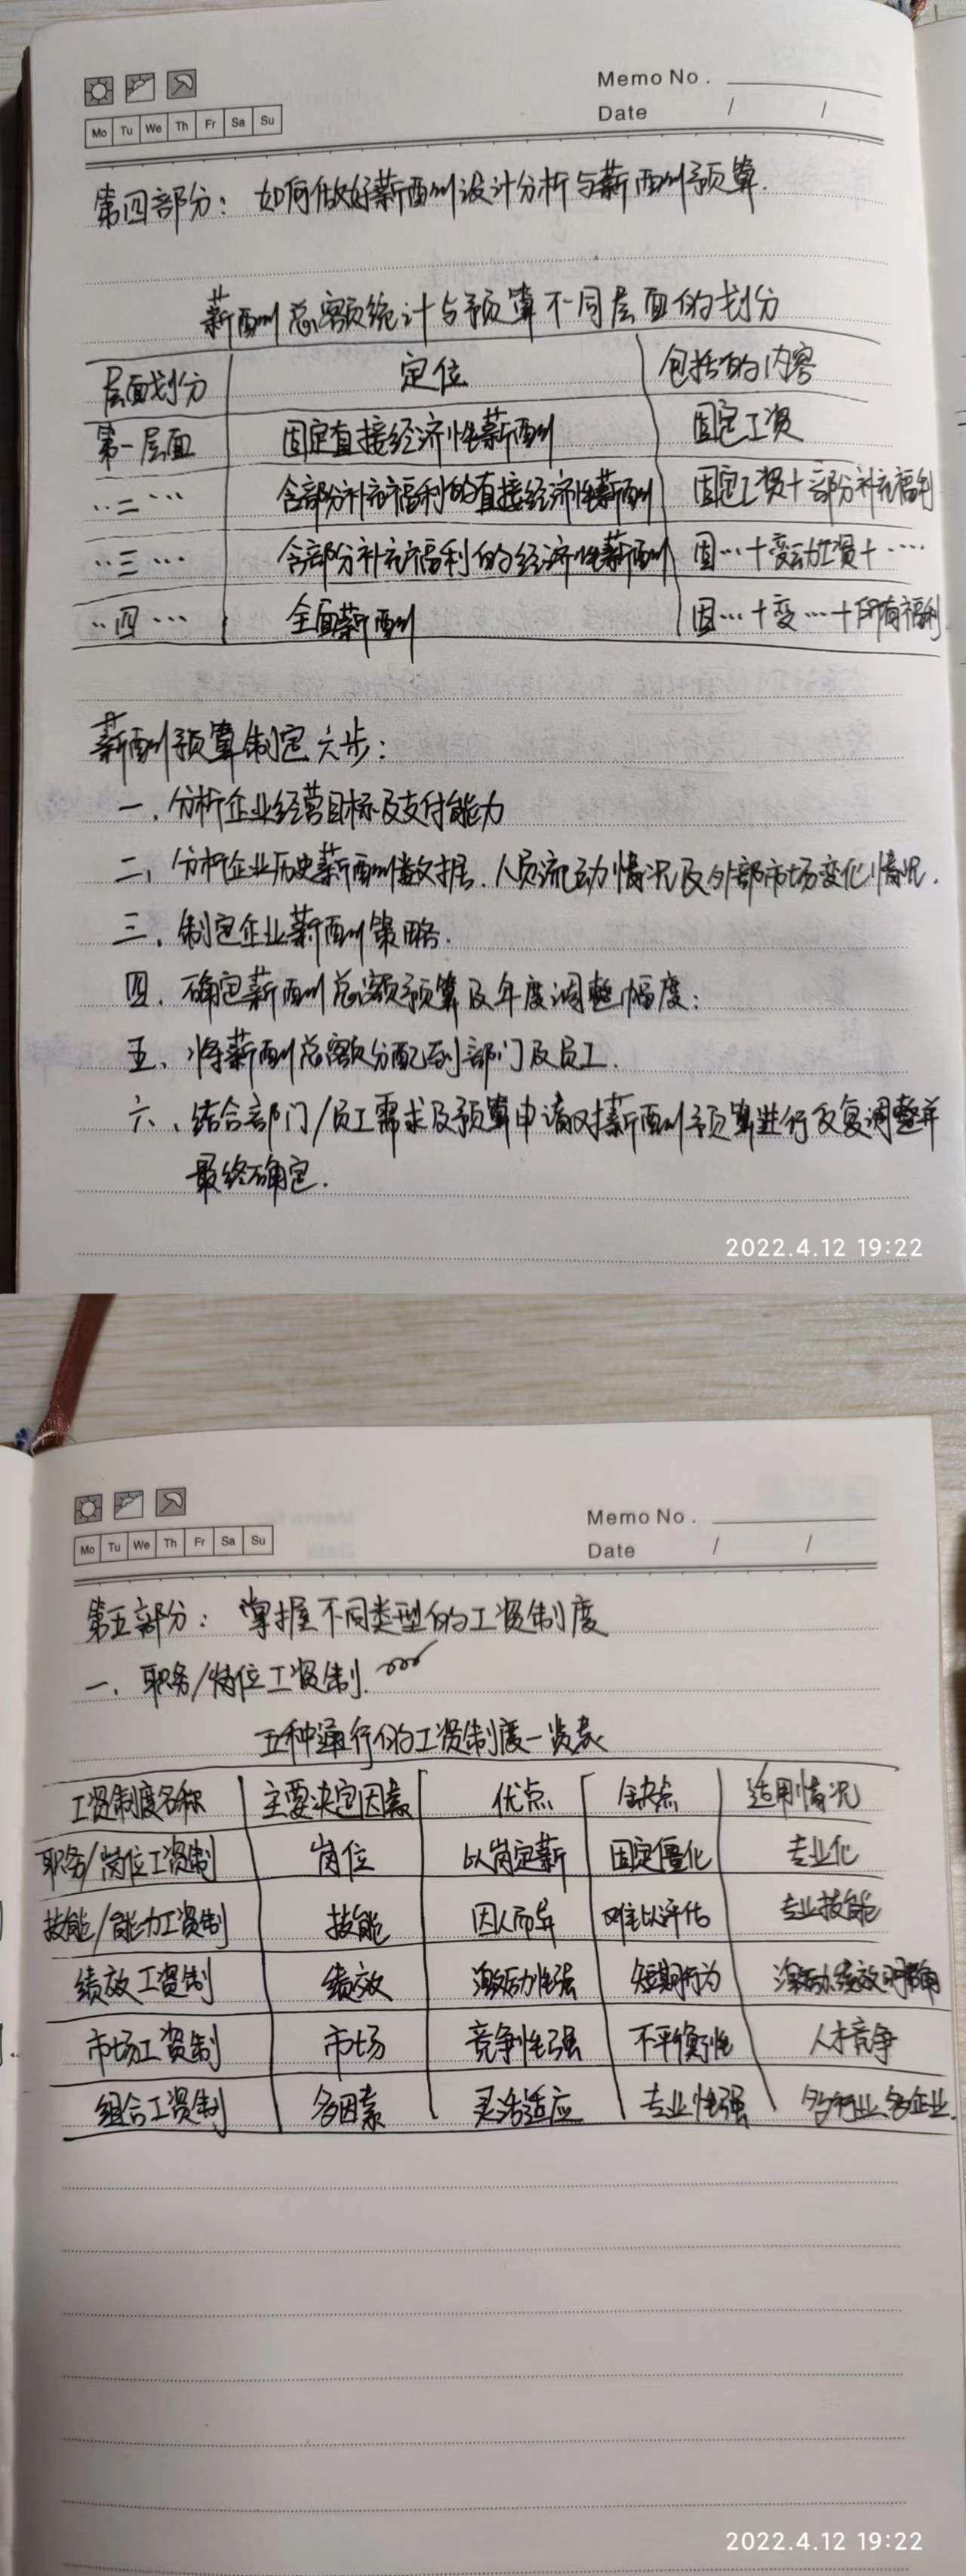 Memo No.
Mo Tu We Th Fr Sa Su
Date / /
第四部分：如何做好薪酬设计分析与薪酬预算.
薪酬总额统计与预算不同层面的划分
层面划分 定位 包括的内容
第一层面 固定直接经济性薪酬 固定工资
··二··· 含部分补充福利的直接经济性薪酬 固定工资+部分补充福利
··三··· 含部分补充福利的经济性薪酬 固···+变动工资+····
··四··· 全面薪酬 固···+变···+所有福利
薪酬预算制定六步：
一、分析企业经营目标及支付能力
二、分析企业历史薪酬数据、人员流动情况及外部市场变化情况.
三、制定企业薪酬策略.
四、确定薪酬总额预算及年度调整幅度；
五、将薪酬总额分配到部门及员工.
六、结合部门/员工需求及预算申请对薪酬预算进行反复调整并
最终确定.
2022.4.12 19:22
Memo No.
Mo Tu We Th Fr Sa Su
Date / /
第五部分：掌握不同类型的工资制度
一、职务/岗位工资制.
五种通行的工资制度一览表
工资制度名称 主要决定因素 优点 缺点 适用情况
职务/岗位工资制 岗位 以岗定薪 固定僵化 专业化
技能/能力工资制 技能 因人而异 难以评估 专业技能
绩效工资制 绩效 激励性强 短期行为 激励绩效明确
市场工资制 市场 竞争性强 不平衡性 人才竞争
组合工资制 多因素 灵活适应 专业性强 各行业、各企业.
2022.4.12 19:22